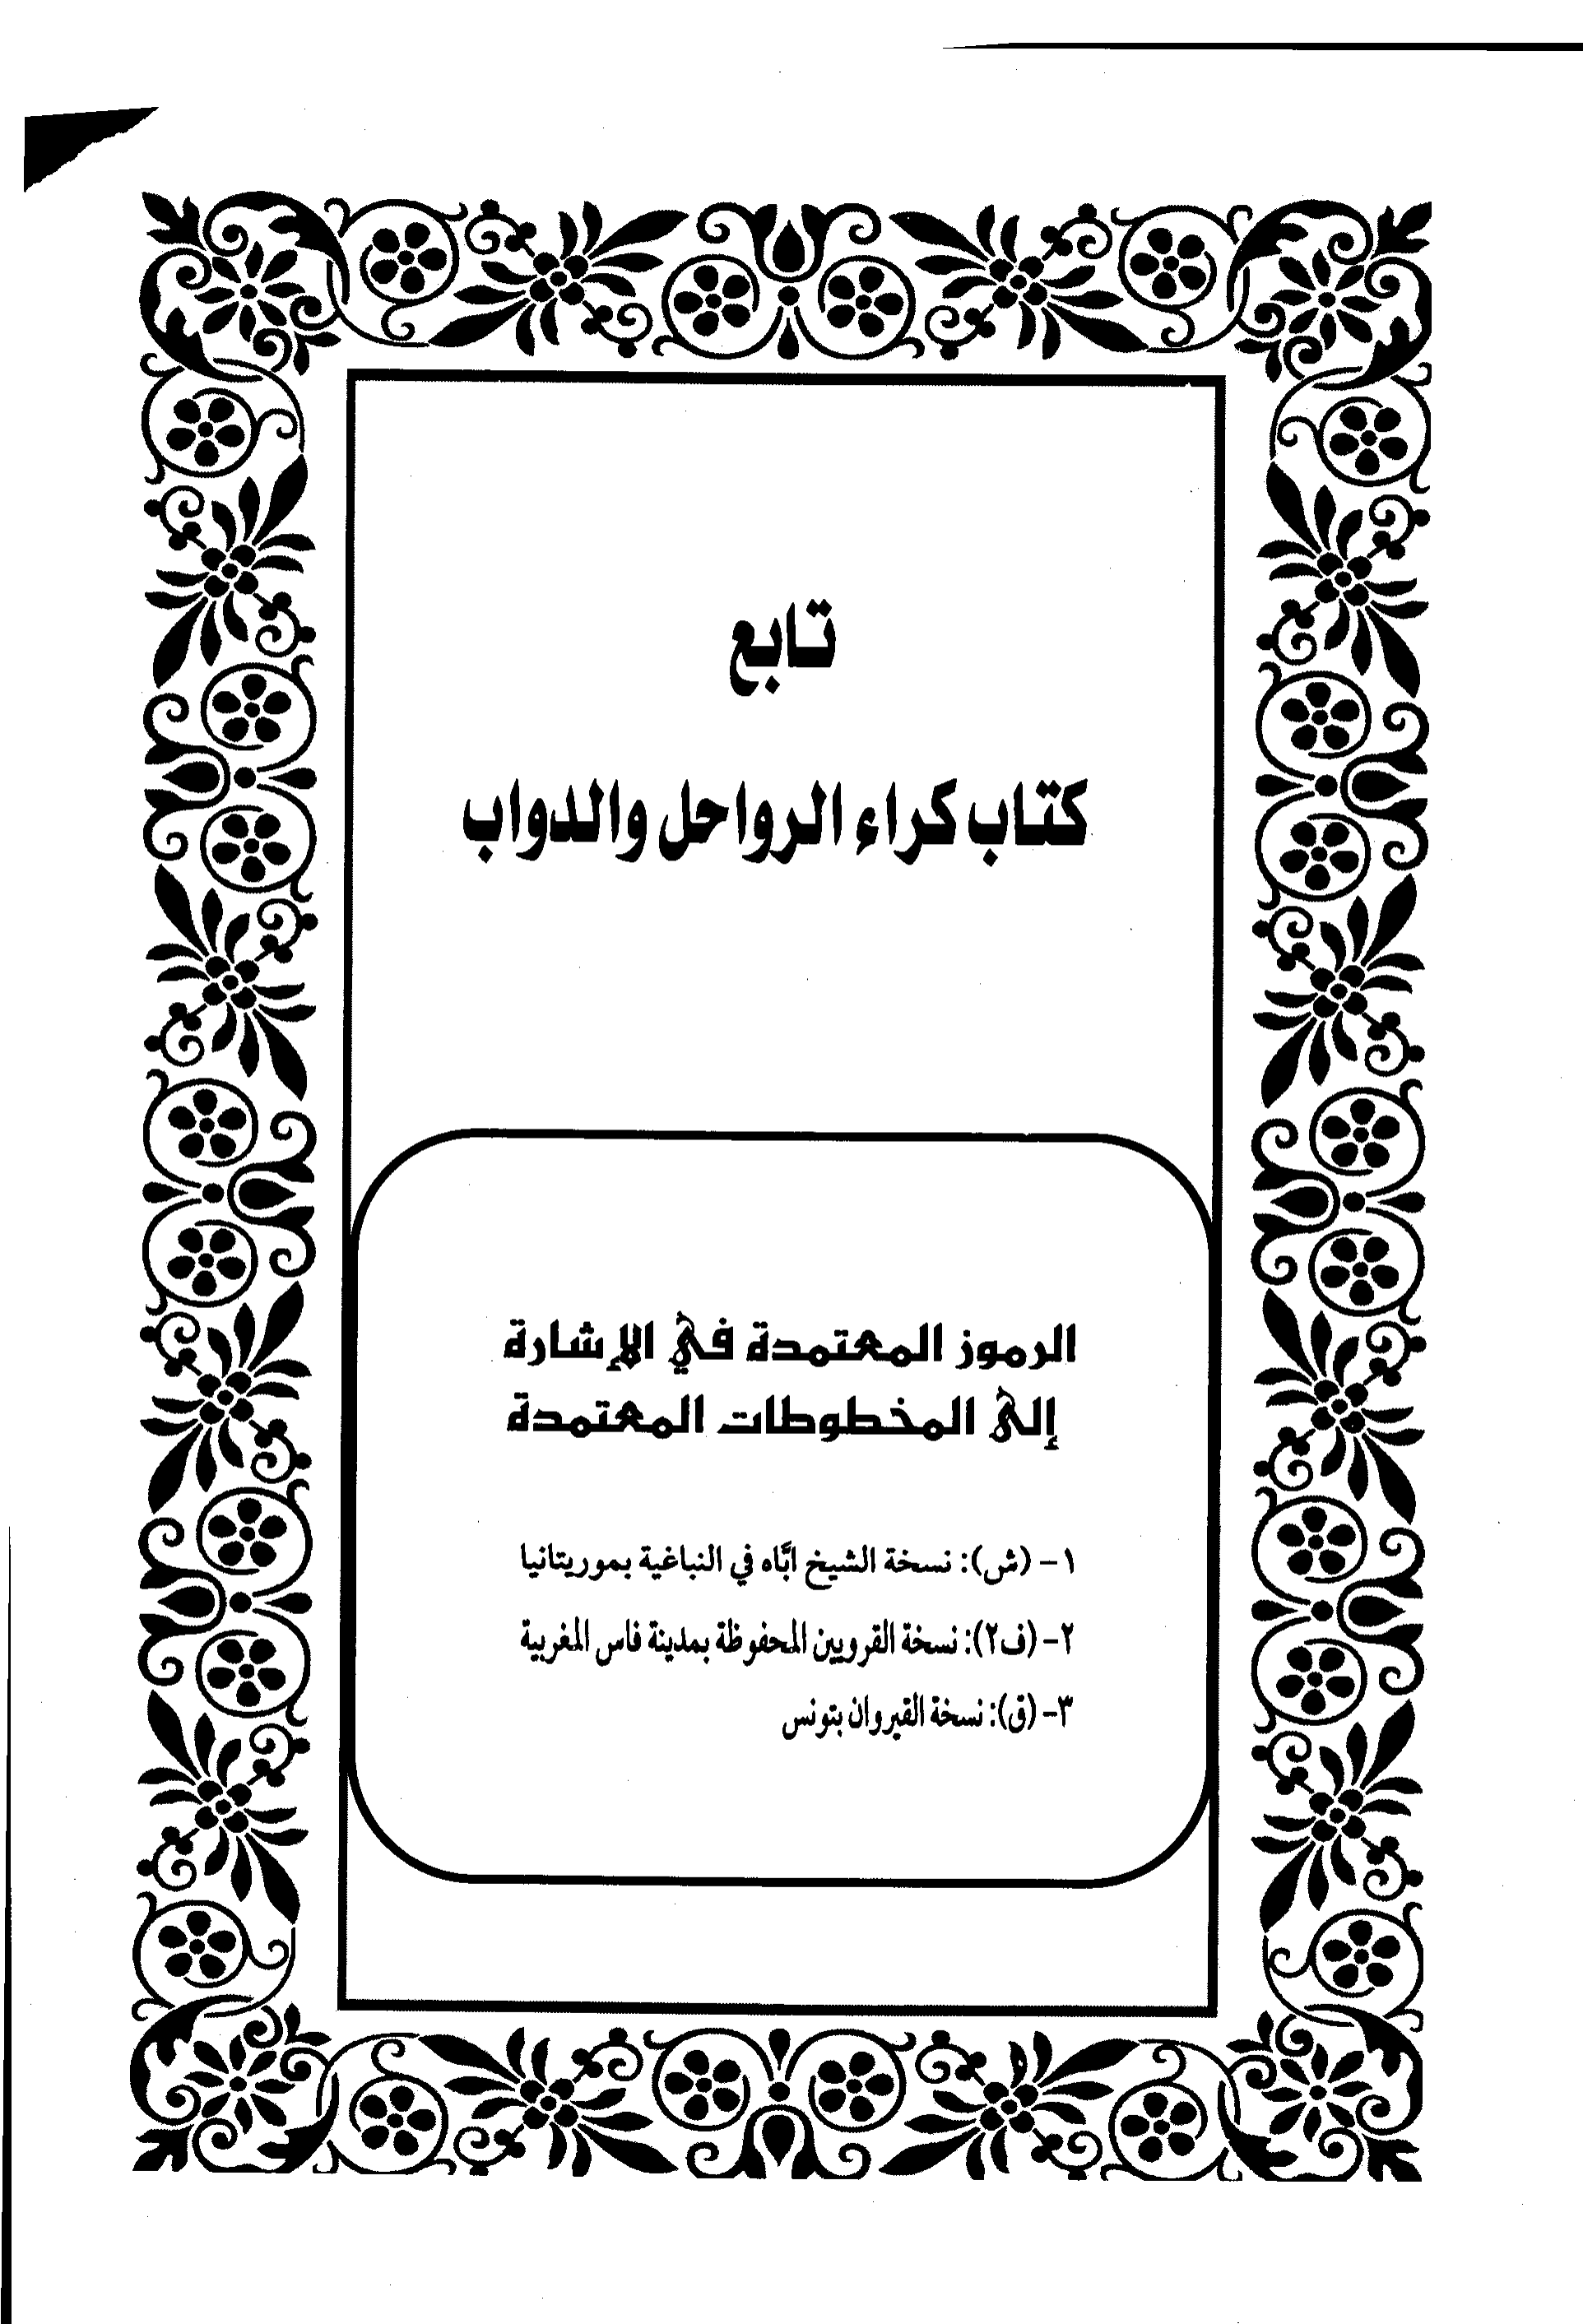 تابع
كتاب كراء الرواحل والدواب
الرموز المعتمدة في الإشارة
إلى المخطوطات المعتمدة
١- (ش): نسخة الشيخ ابَّاه في النباغية بموريتانيا
٢- (ف٢): نسخة القرويين المحفوظة بمدينة فاس المغربية
٣- (ق): نسخة القيروان بتونس